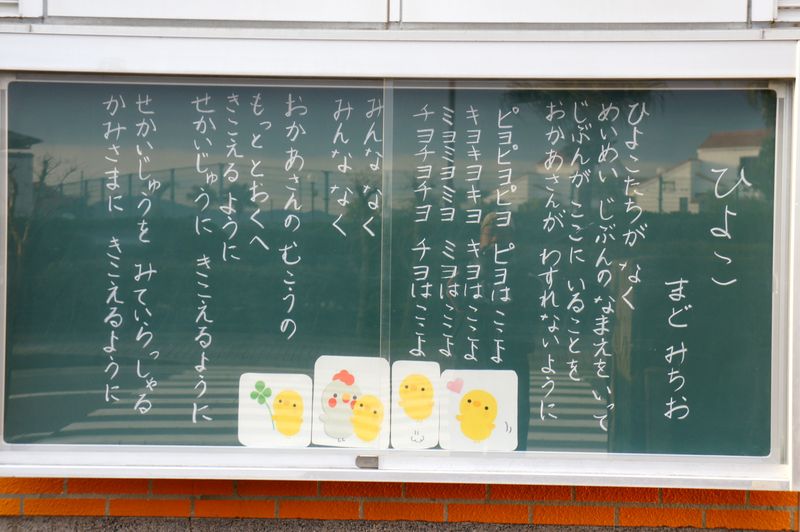 ひよこ
まど みちお
ひよこたちが なく
めいめい じぶんの なまえを いって
じぶんが ここに いることを
おかあさんが わすれないように
ピヨピヨピヨ ピヨは ここよ
キヨキヨキヨ キヨは ここよ
ミヨミヨミヨ ミヨは ここよ
チヨチヨチヨ チヨは ここよ
みんな なく
みんな なく
おかあさんの むこうの
もっと とおくへ
きこえるように
せかいじゅうに きこえるように
せかいじゅうを みていらっしゃる
かみさまに きこえるように